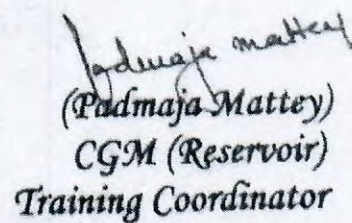 Padmaja Mattey
(Padmaja Mattey)
CGM (Reservoir)
Training Coordinator